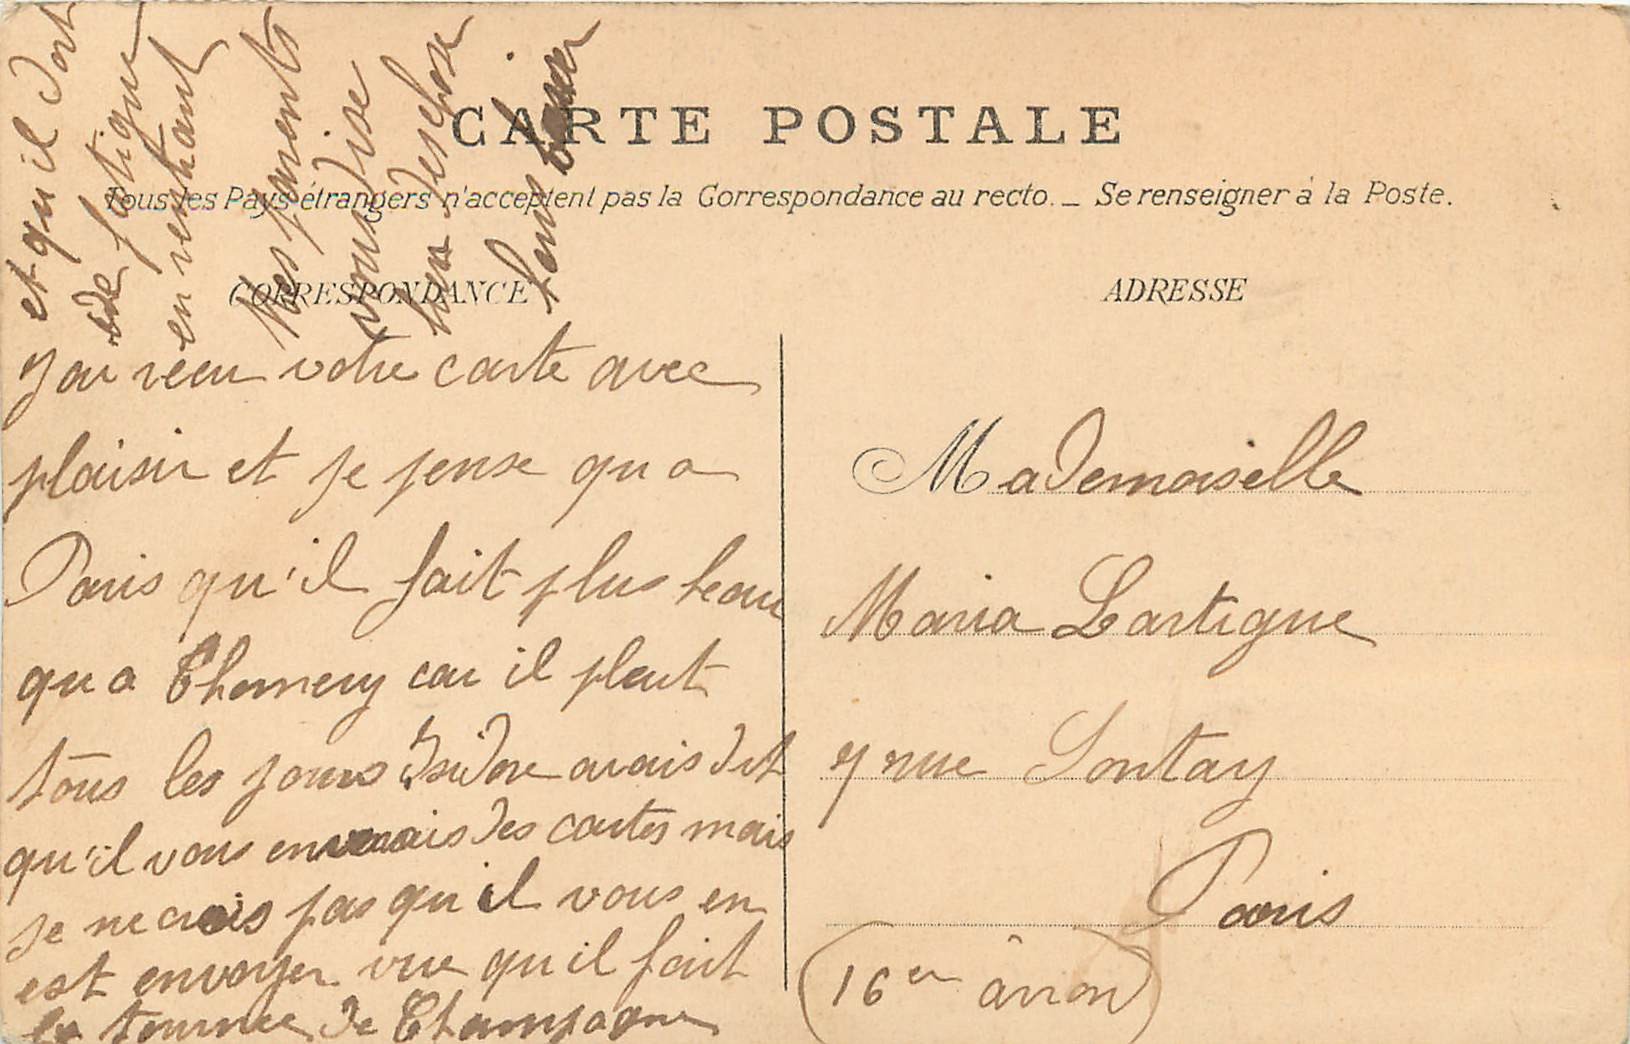 CARTE POSTALE
Tous les Pays étrangers n'acceptent pas la Correspondance au recto. _ Se renseigner à la Poste.
CORRESPONDANCE
J'ai recu votre carte avec
plaisir et je pense qu a
Paris qu'il fait plus beau
qu a Thomery car il pleut
tous les jours Isidore avais dit
qu'il vous enverais des cartes mais
je ne crois pas qu il vous en
est envoyer vue qu il fait
la tournee de Champagne
et qu il dort
de fatigue
en rentrant
Mes parents
vous dise
bien des chose
leur baiser
ADRESSE
Mademoiselle
Maria Lartigue
7 rue Lontay
Paris
(16er arron)